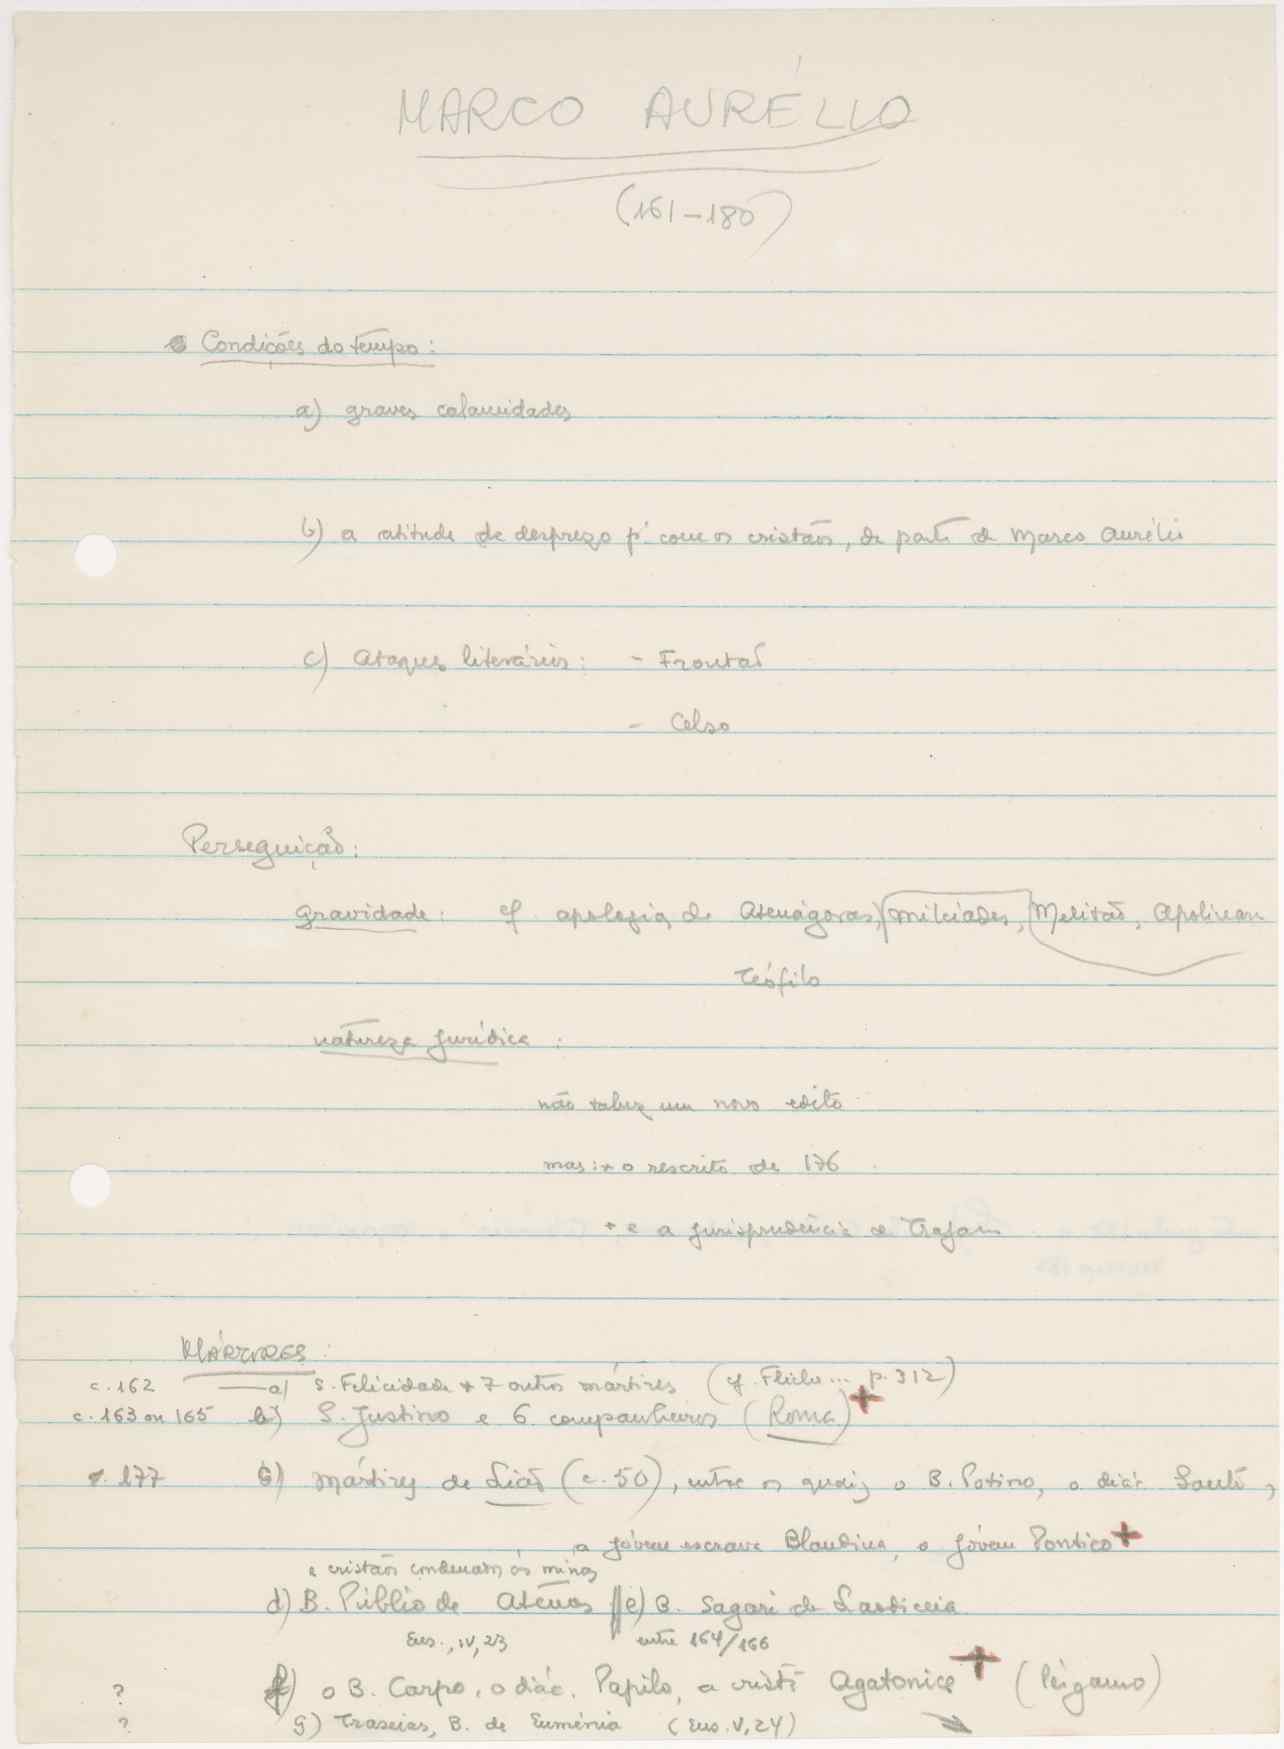 MARCO AURÉLIO
(161-180)
Condições do tempo:
a) graves calamidades
b) a atitude de desprezo p. com os cristãos, da parte de Marco Aurélio
c) Ataques literários: - Frontão
- Celso
Perseguição:
gravidade: cf. apologia de Atenágoras, Milcíades, Melitão, Apolinar
Teófilo
natureza jurídica:
não talvez um novo edito
mas: + o rescrito de 176
+ e a jurisprudência de Trajano
MÁRTIRES:
c. 162 a) S. Felicidade + 7 outros mártires (cf. Fliche... p. 312)
c. 163 ou 165 b) S. Justino e 6 companheiros (Roma) +
c. 177 c) Mártires de Lião (c. 50), entre os quais o B. Potino, o diác. Santo,
a jóvem escrava Blandina, o jóvem Pontico +
e cristãos condenados às minas
d) B. Públio de Atenas || e) B. Sagari de Laodiceia
Eus., IV, 23 entre 164/166
? f) o B. Carpo, o diác. Papilo, a cristã Agatonice + (Pérgamo)
? g) Traseias, B. de Euménia (Eus. V, 24)